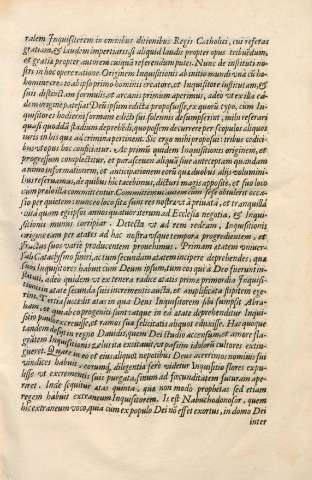 ralem Inquisitorem in omnibus ditionibus Regis Catholici, cui referas
gratiam, & laudem impertiaris, si aliquid laudis propter opus tribuēdum,
et gratia propter autorem cuiquā referendum putes. Nunc de instituti no-
stri in hoc opere ratione. Originem Inquisitionis ab initio mundi vnà cū ho-
homine orto ab ipso primo hominis creatore, et Inquisitore institutam, &
suis distinctam formulis, et arcanis primum aperimus, adeo vt ex illa ea-
dem origine patefiat Dei ipsum edicta proposuisse, ex quorū typo, cum In-
quisitores hodierni formam edicti sui solennes desumpserint, mihi referari
quasi quoddā stadium deprehēdi, quo possem decurrere per scopulos aliquot
iuris in his quæ ad crimina pertinent. Sic ergo mihi proposui: tribus codici-
bus vt opus hoc conficiatur. Ac primus quidem Inquisitionis originem, et
progressum complectitur, et parasceuen aliquā siue anteceptam quandam
animo informationem, et anticipationem eorū quæ duobus alijs volumini-
bus reseruamus, de quibus hic tacebimus, dicturi magis apposite, et suo loco
cum prælo illa committentur. Committentur autem cum sese obtulerit occa-
sio per quietem: nunc eo loco res sunt res nostræ vt à priuata, et tranquilla
vita quam egi ipsos annos quatuor iterum ad Ecclesiæ negotia, & Inqui-
sitionis munus corripiar. Detecta vt ad rem redeam, Inquisitionis
origine eam per ætates ad hæc nostra vsque tempora progredientem, et
fructus suos varie producentem prouehimus. Primam ætatem vniuer-
sali Cataclysmo finiri, ac tum secundam ætatem incipere deprehendes: quæ
suos Inquisitores habuit cum Deum ipsum, tum eos qui à Deo fuerunt in-
stituti, adeo quidem vt ex tenera radice ætatis primæ primordio Inquisi-
tionis in ætate secunda suis incrementis aucta, et amplificata ipsitem ege-
rint. Tertia succedit ætas in qua Deus Inquisitorem sibi suimpsit Abra-
ham, et quæ ab eo progeniti sunt: atque in ea ætate deprehenditur Inqui-
sitio paululum excreuisse, et ramos suæ felicitatis aliquot eduxisse. Hac quoque
standem desinit regno Dauidis, quem Dei studio accensum, et amore fla-
gratem Inquisitionis zelus ita excitauit, vt passim idolorū cultores extin-
gueret. Quare in eo et eius aliquot nepotibus Deus acerrimos nominis sui
vindices habuit, eorumq́; diligentia ferè videtur Inquisitio flores expu-
lisse vt excrementis suis purgata, sinum ad fecunditatem futuram ape-
riret. Inde sequitur ætas quinta, quæ non modo prophetas sed etiam
regem habuit extraneum Inquisitorem. Is est Nabuchodonosor, quem
hic extraneum voco, quia cum ex populo Dei nō esset exortus, in domo Dei
inter